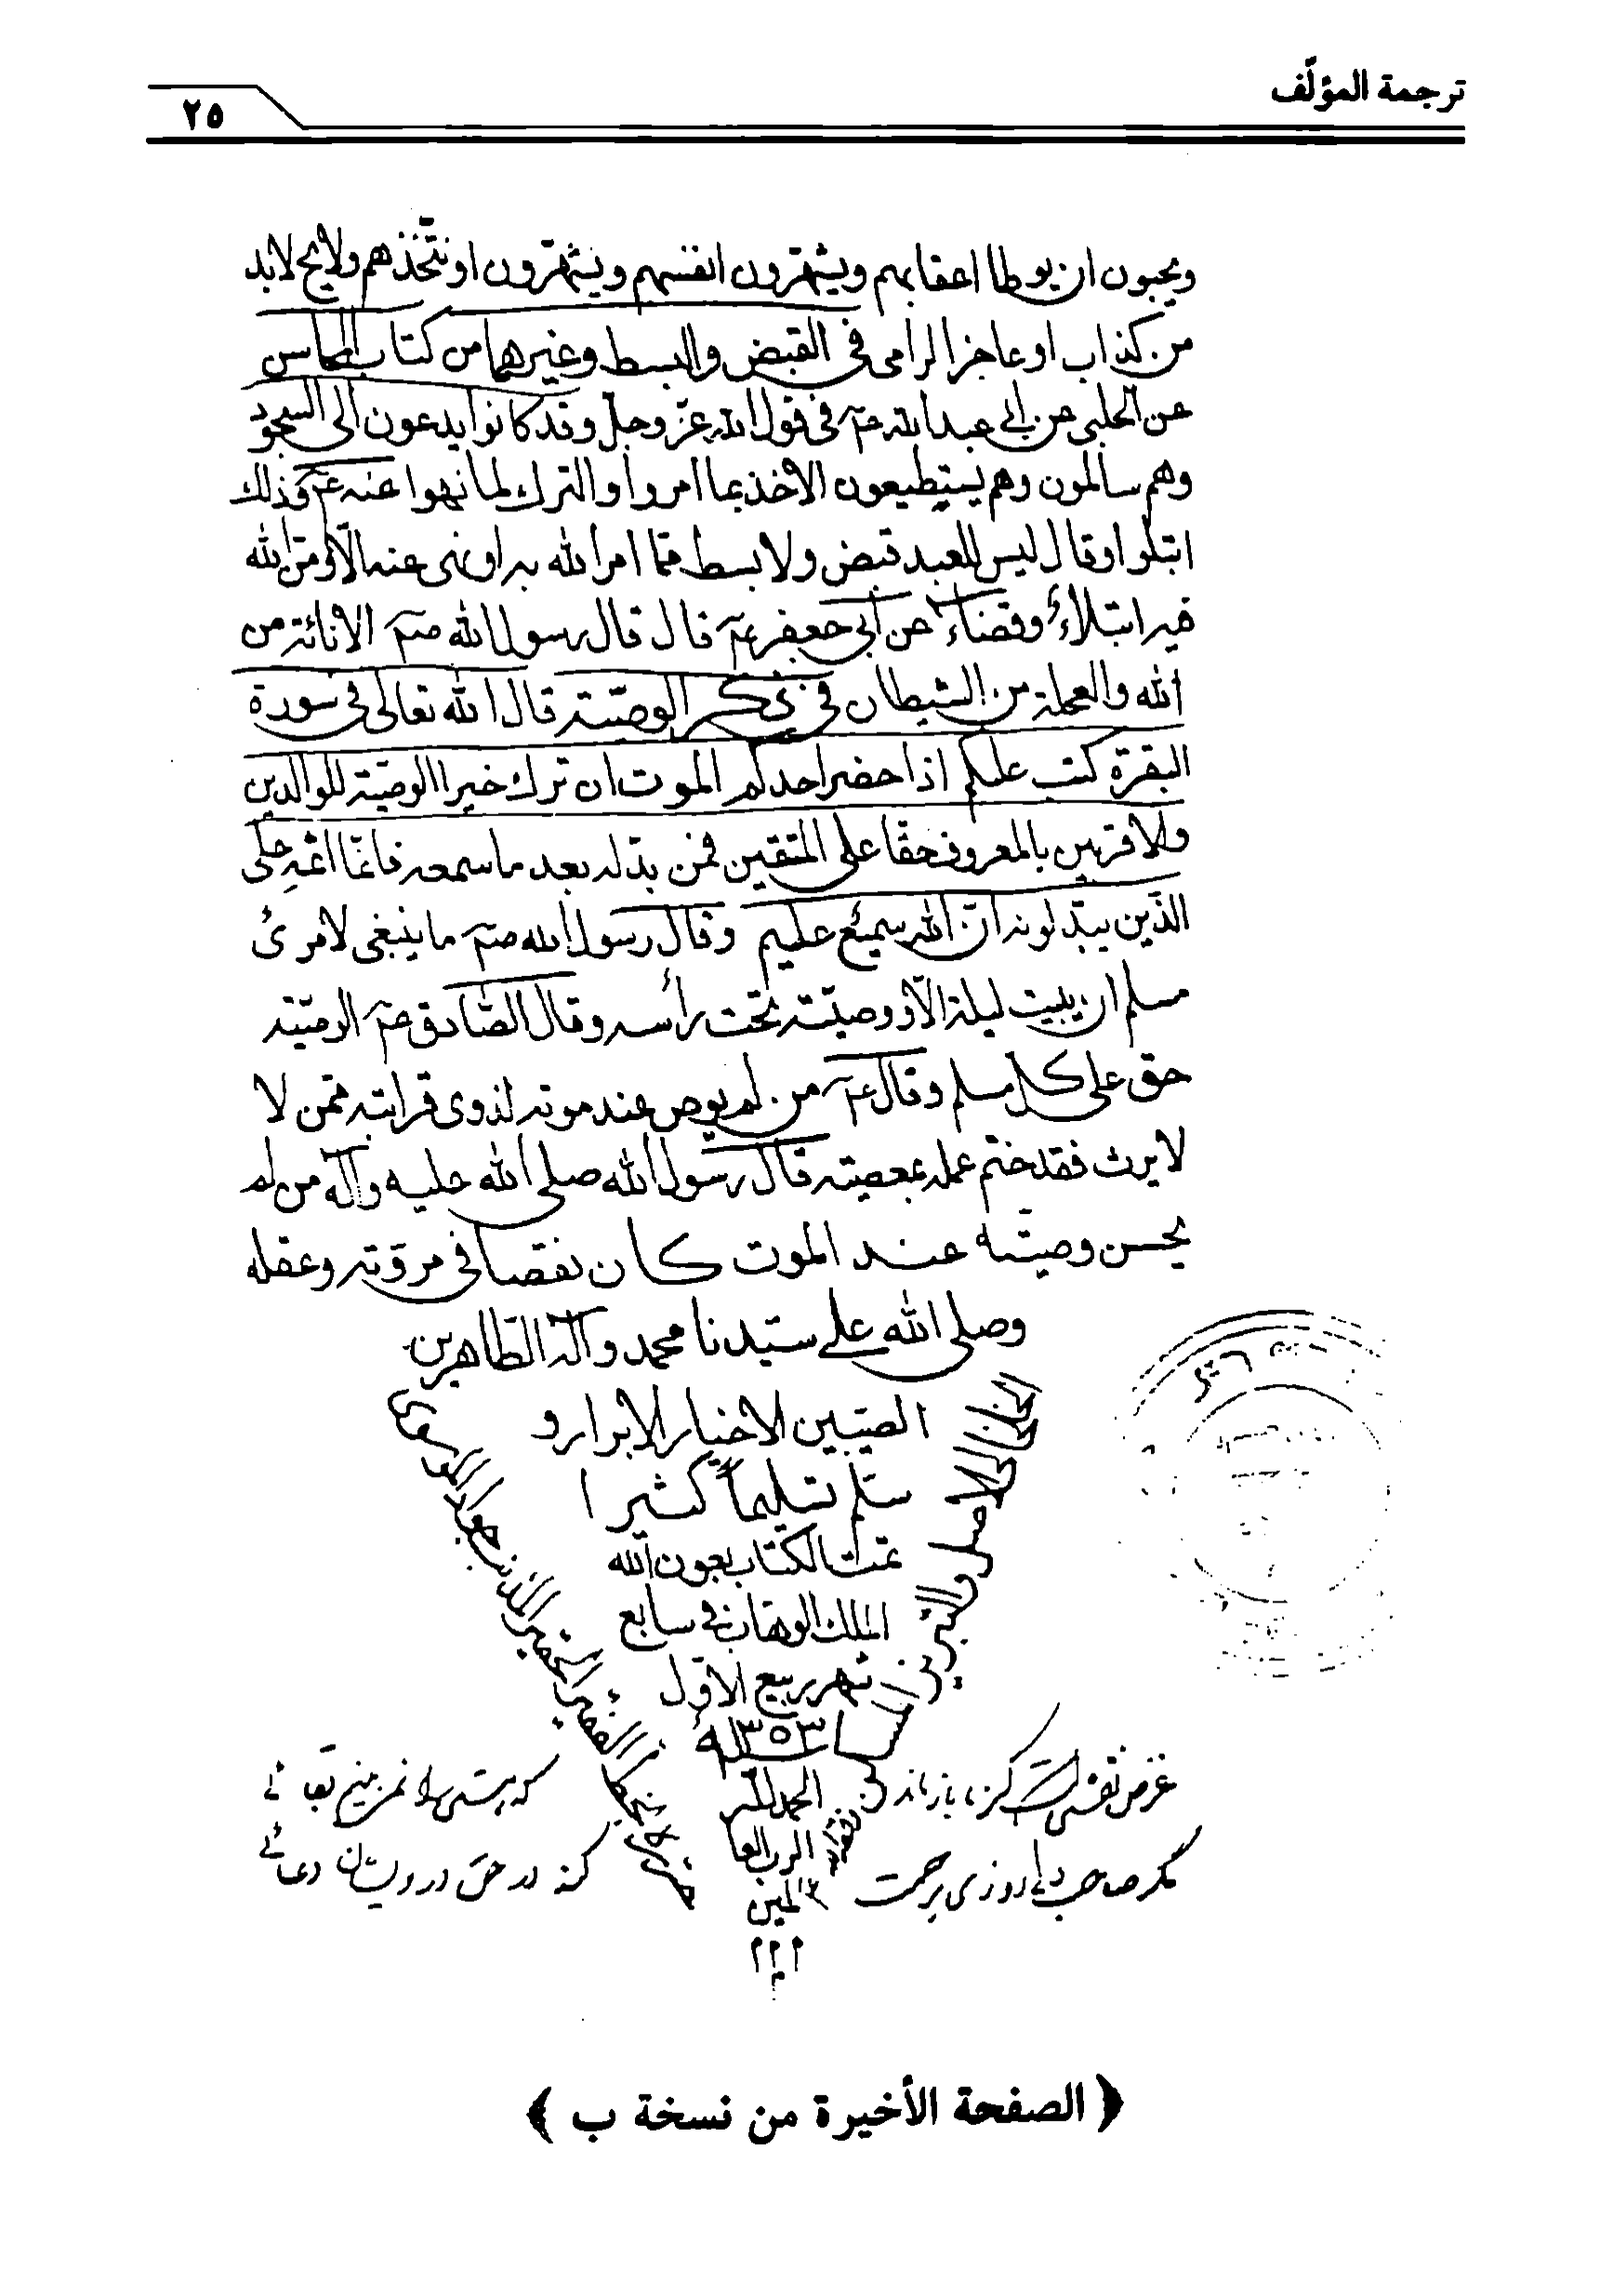 ترجمة المؤلّف
٢٥
ويحبون ان يوطا اعقابهم ويشهرون انفسهم ويشهرون او نتخذهم ولايج لابد
من كذاب او عاجز الرامى فى القبض والبسط وغيرهما من كتاب المحاسن
عن الحلبى عن ابى عبدالله عم فى قول الله عزّ وجلّ وقد كانوا يدعون الى السجود
وهم سالمون وهم يستطيعون الاخذ بما امروا والترك لما نهوا عنه وكذلك
ابتلوا وقال ليس للعبد قبض ولا بسط مما امر الله به او نهى عنه الّا ومن الله
فيه ابتلاء وقضاء عن ابى جعفر عم قال قال رسول الله صم الاناءة من
الله والعجلة من الشيطان فى ذكر الوصيّة قال الله تعالى فى سورة
البقرة كتب عليكم اذا حضر احدكم الموت ان ترك خيرا الوصيّة للوالدين
والاقربين بالمعروف حقا على المتقين فمن بدّله بعد ما سمعه فانّما اثمه على
الذين يبدّلونه انّ الله سميع عليم وقال رسول الله صم ما ينبغى لامرئ
مسلم ان يبيت ليلة الّا ووصيّته تحت رأسه وقال الصّادق عم الوصيّة
حق على كل مسلم وقال عم من لم يوص عند موته لذوى قرابته ممن لا
لايرث فقد ختم عمله بمعصيته قال رسول الله صلى الله عليه وآله من لم
يحسن وصيّته عند الموت كان نقصا فى مروّته وعقله
وصلى الله على سيّدنا محمد وآله الطاهرين
الطيبين الاخيار الابرار و
سلّم تسليماً كثيرا
تمت الكتاب بعون الله
الملك الوهاب فى سابع
شهر ربيع الاوّل
١٣٥٣
الحمد لله
الرب العا
لمين
الفقير الحقير المذنب جواد الموسوى
الاصل والتبريزى
غرض نقشى است كز ما باز ماند
كه هستى را نمى بينم بقائى
مگر صاحب دلى روزى برحمت
كند در حق درويشان دعائى
﴿ الصفحة الأخيرة من نسخة ب ﴾